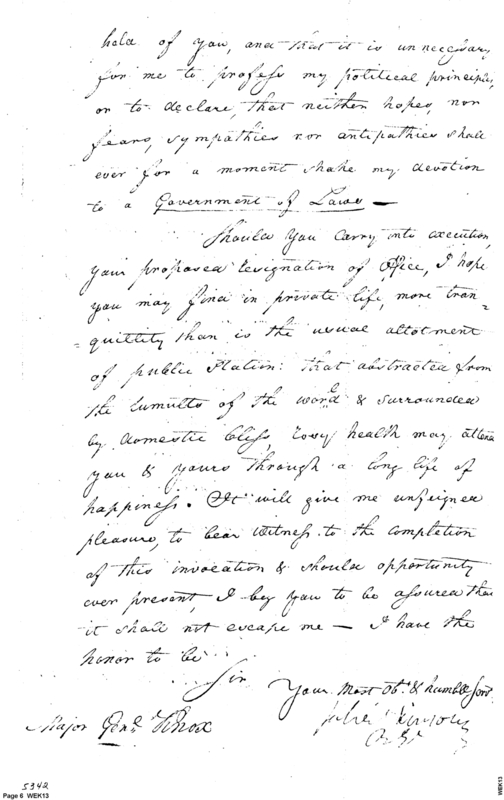 hold of you, and that it is unnecessary
for me to profess my political principles,
or to declare, that neither hopes, nor
fears, sympathies nor antipathies shall
ever for a moment shake my devotion
to a Government of Laws —
Should you carry into execution,
your proposed resignation of Office, I hope
you may find in private life, more tran=
=quillity than is the usual allotment
of public Station: that abstracted from
the tumults of the world & surrounded
by domestic bliss, rosy health may attend
you & yours through a long life of
happiness. It will give me unfeigned
pleasure, to bear witness to the completion
of this invocation & should opportunity
ever present, I beg you to be assured that
it shall not escape me — I have the
honor to be
Sir
Your Most Obt. & humble Servt.
Major Genl. Knox
5342
Page 6 WEK13
WEK13